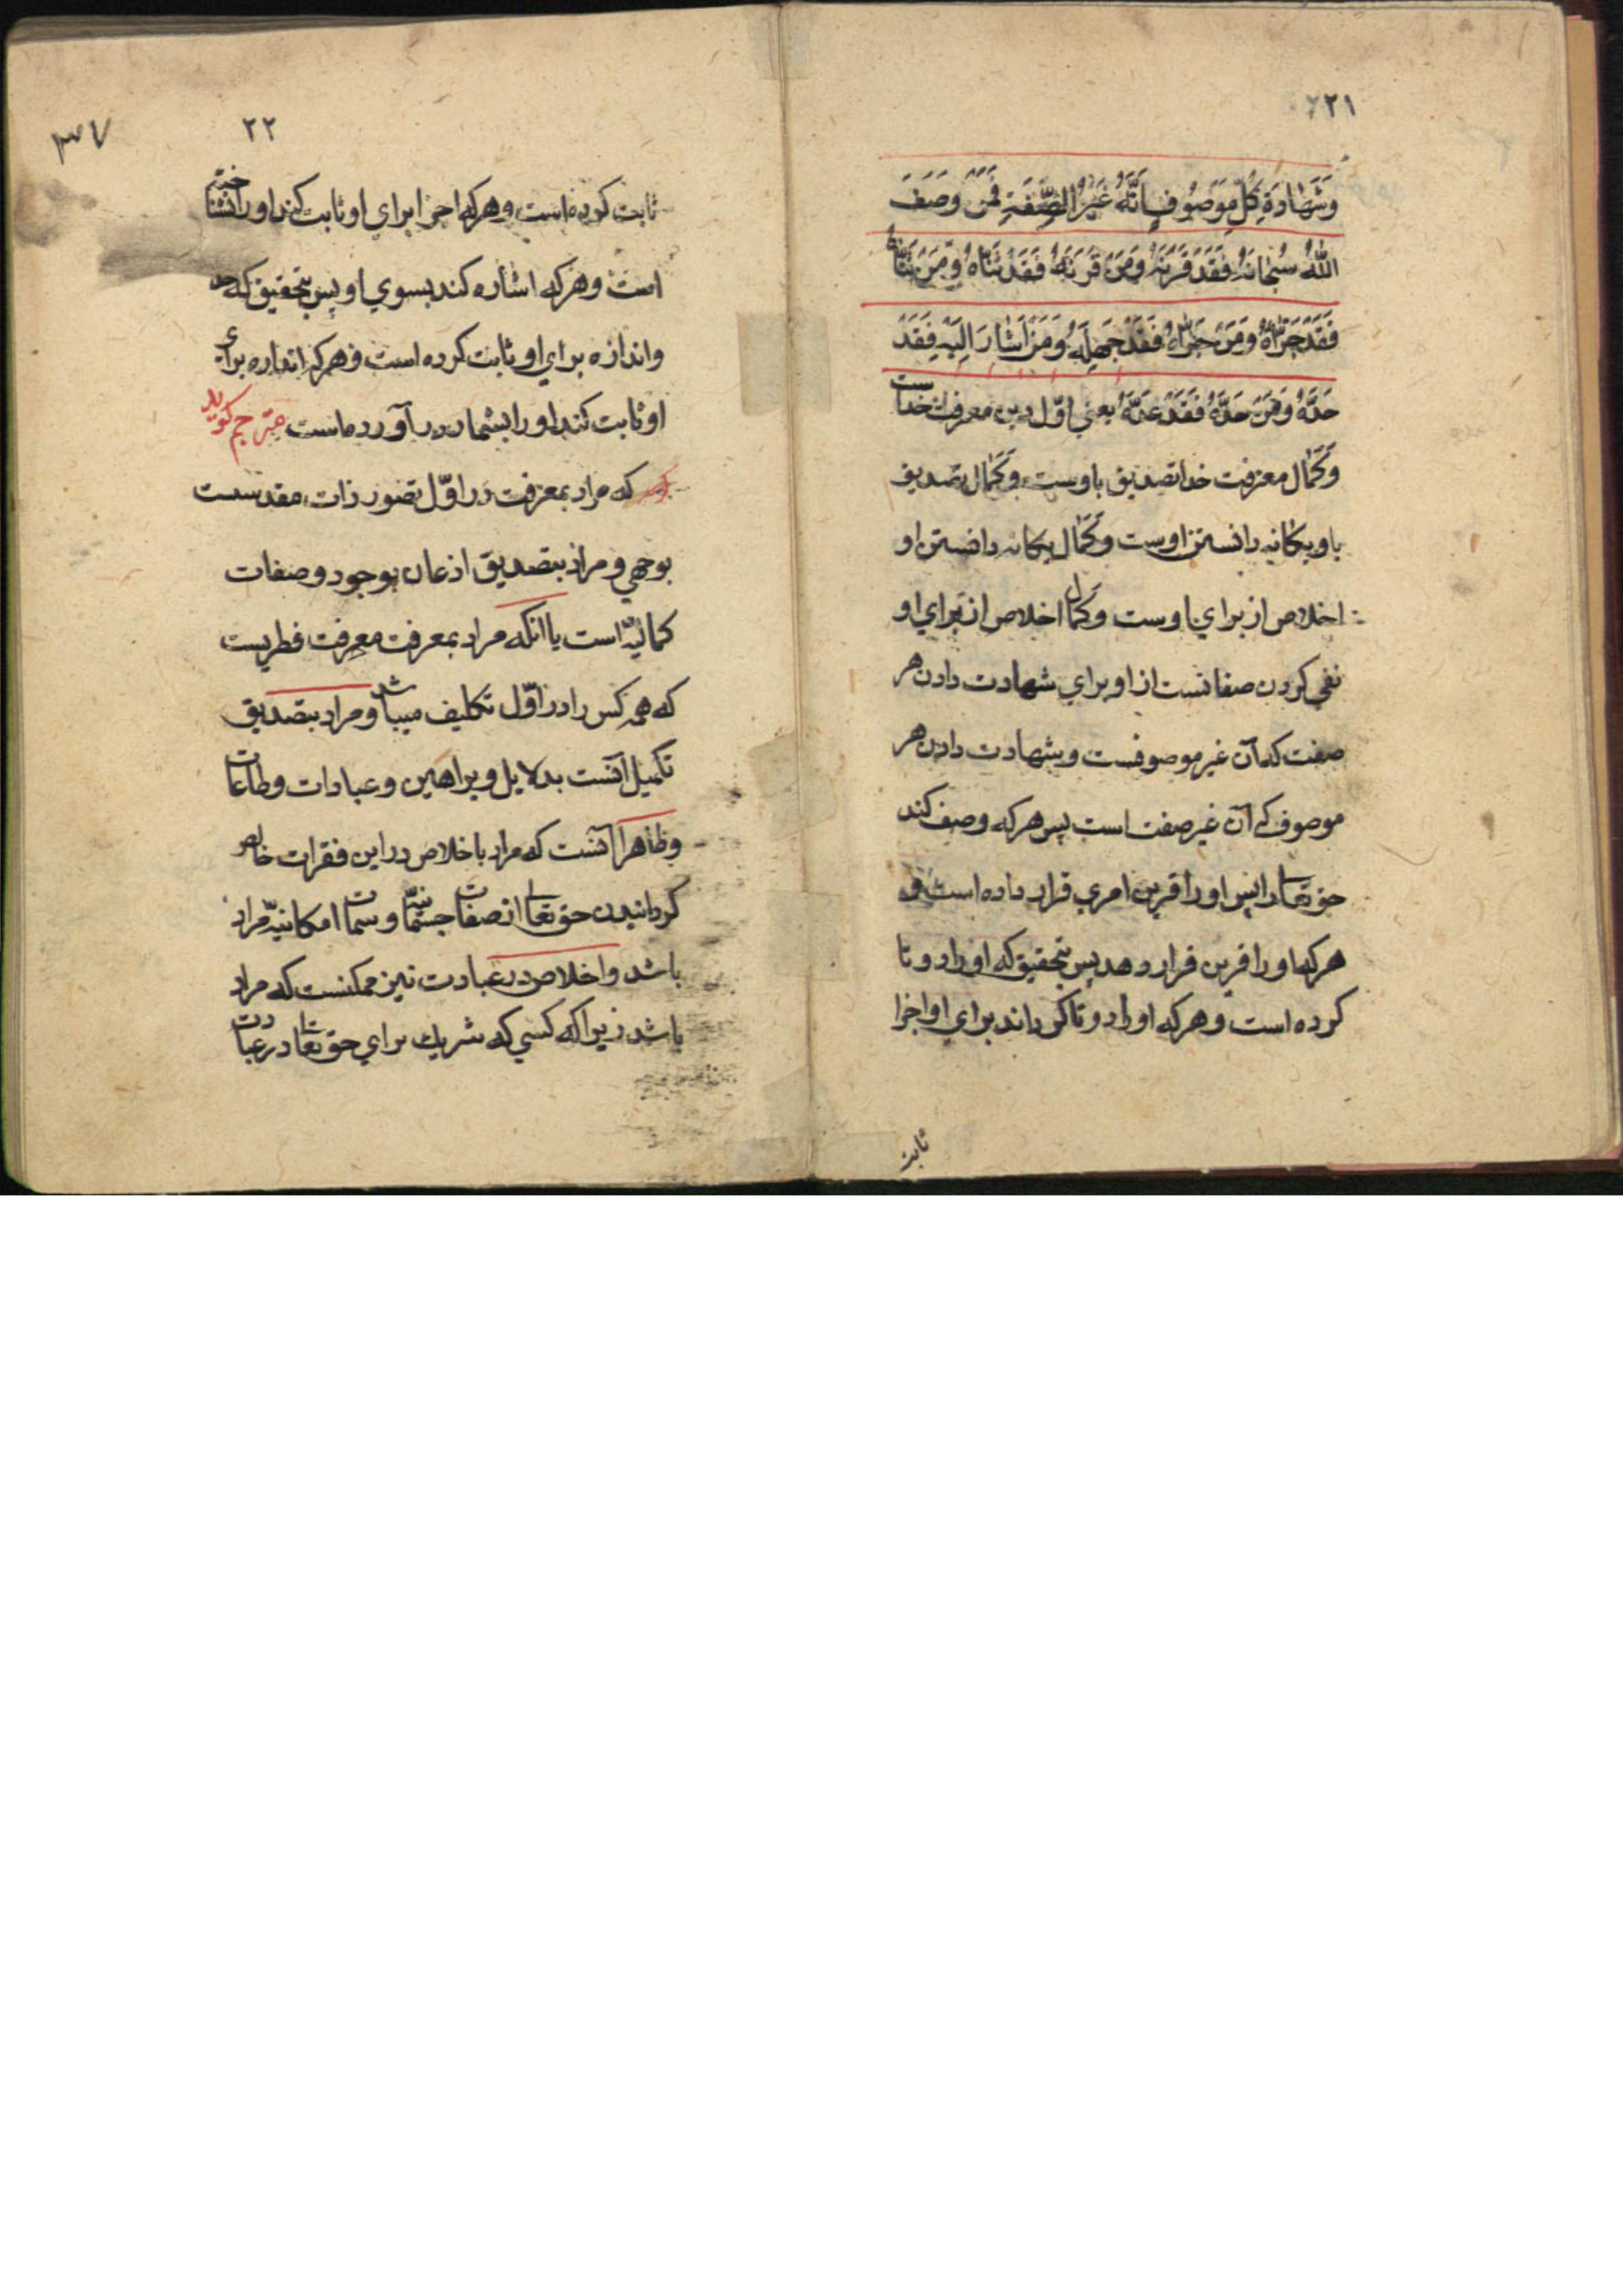 ٢٢١
وَشَهٰادَةِ كُلِّ مَوْصُوفٍ اَنَّهُ غَيْرُ الصِّفَةِ فَمَنْ وَصَفَ
اللّٰهُ سُبْحٰانَهُ فَقَدْ قَرَنَهُ وَمَنْ قَرَنَهُ فَقَدْ ثَنّٰاهُ وَمَنْ ثَنّٰاهُ
فَقَدْ جَزَّاَهُ وَمَنْ جَزَّاَهُ فَقَدْ جَهِلَهُ وَمَنْ اَشٰارَ اِلَيْهِ فَقَدْ
حَدَّهُ وَمَنْ حَدَّهُ فَقَدْ عَدَّهُ يعني اوّل دين معرفت خداست
وكمال معرفت خدا تصديق باوست وكمال تصديق
باو يكانه دانستن اوست وكمال يكانه دانستن او
اخلاص از براي اوست وكمال اخلاص از براي او
نفي كردن صفاتست از او براي شهادت دادن هر
صفت كه آن غير موصوفست وشهادت دادن هر
موصوف كه آن غير صفت است پس هر كه وصف كند
حق تعالى را پس او را قرين امري قرار داده است و
هر كه او را قرين قرار دهد پس بتحقيق كه او را دو تا
كرده است وهر كه او را دو تا كرداند براي او اجزا
ثابت
٣٧
٢٢
ثابت كرده است وهر كه اجزا براي او ثابت كند او را نشناخته
است وهر كه اشاره كند بسوي او پس بتحقيق كه حد
واندازه براي او ثابت كرده است وهر كه اندازه براي
او ثابت كند او را بشمار در آورده است مترجم كويد
كه مراد بمعرفت در اوّل تصور ذات مقدسست
بوجهي و مراد بتصديق اذعان بوجود وصفات
كماليّه است يا آنكه مراد بمعرفت معرفت فطريست
كه همه كس را در اوّل تكليف ميباشد ومراد بتصديق
تكميل آنست بدلايل وبراهين وعبادات وطاعات
وظاهراً آنست كه مراد باخلاص در اين فقرات خالص
كردانيدن حق تعالى از صفات جسمانيّه وسمات امكانيّه مراد
باشد واخلاص در عبادت نيز ممكنست كه مراد
باشد زيرا كه كسي كه شريك براي حق تعالى در عبادت